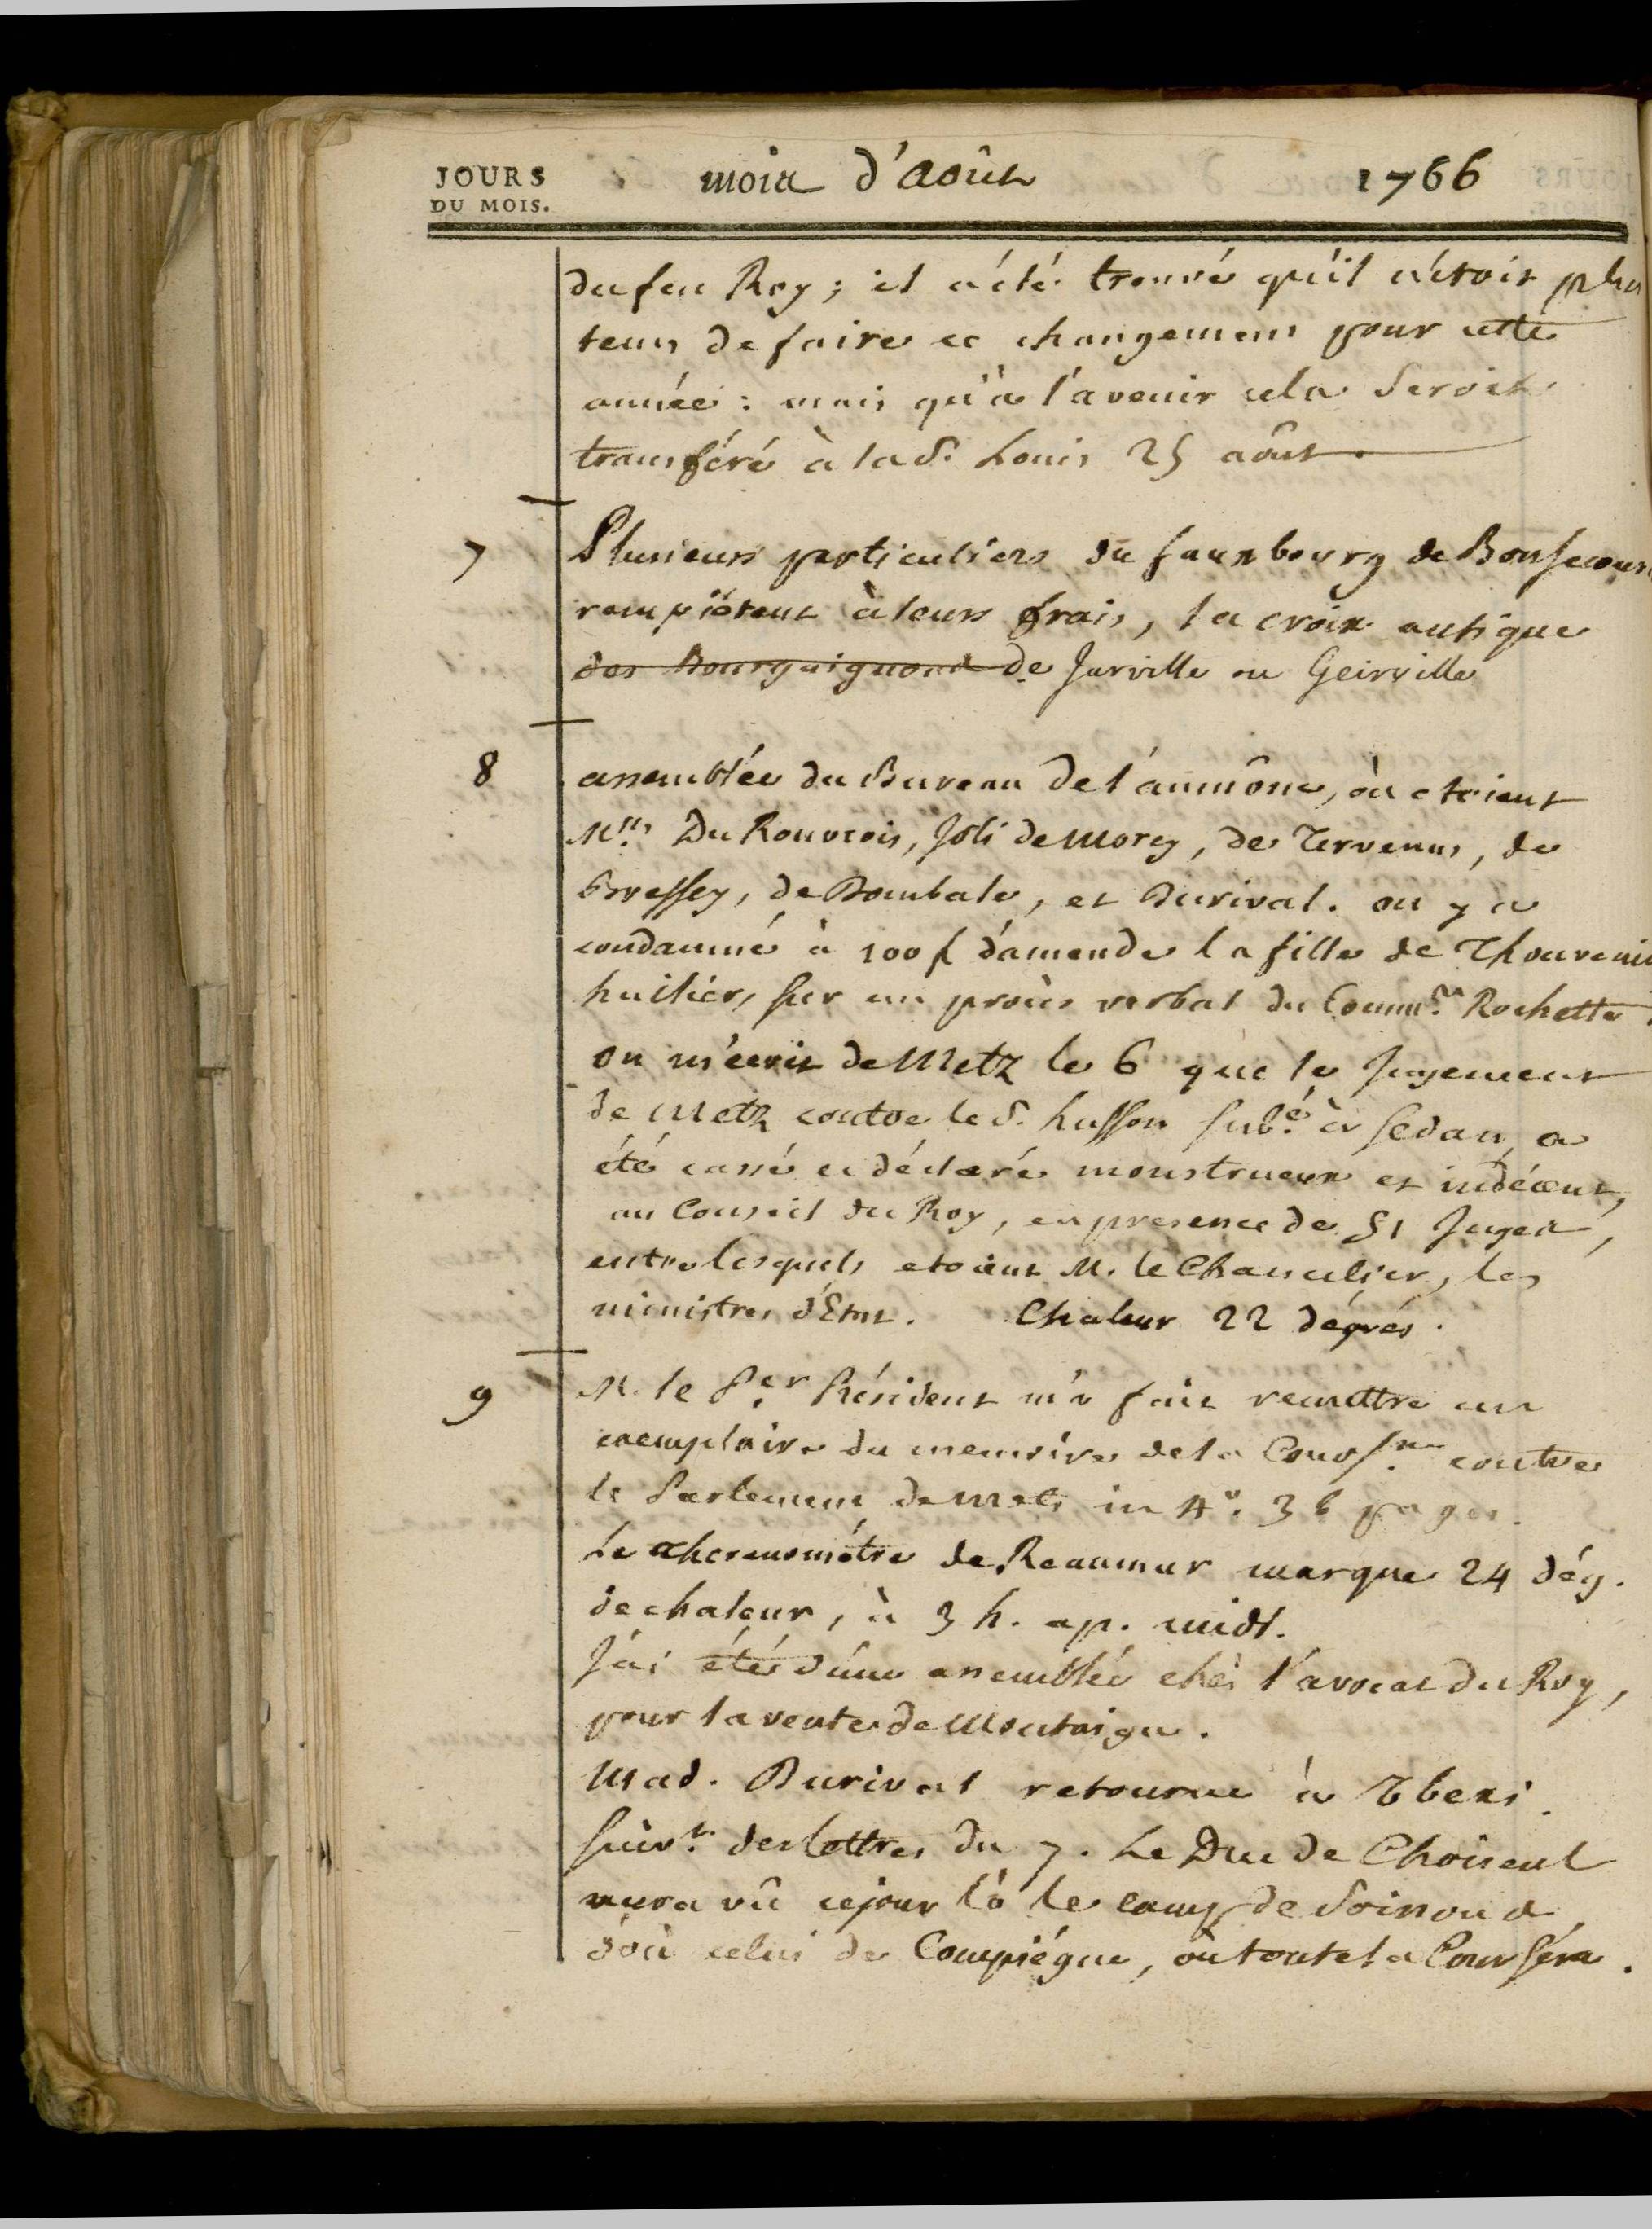 JOURS
DU MOIS.
mois d'août 1766
du feu Roy ; il a été trouvé qu'il n'étoit plus
tems de faire ce changement pour cette
année : mais qu'à l'avenir cela seroit
transféré à la St. Louis 25 août.
7 Plusieurs particuliers du fauxbourg de Bonsecours
rempiétent à leurs frais, la croix antique
des Bourguignons de Jarville ou Geirville
8 assemblée du Bureau de l'aumône, où etoient
Mrs. Du Rouvrois, Joli de Morey, de Tervenus, de
Bressey, de Bombale, et Durival. on y a
condamné à 100 f d'amende la fille de Thouvenin
huilier, sur un procès verbal du Commre. Rochette.
on m'écrit de Metz le 6 que le jugement
de Metz contre le S. husson subé. à Sedan, a
été cassé et déclaré monstrueux et indécent,
au Conseil du Roy, en presence de 51 Juges,
entre lesquels etoient M. le Chancelier, les
ministres d'Etat. Chaleur 22 dégrés.
9 M. le Per. Président m'a fait remettre un
exemplaire du memoire de la Cour sne. contre
le Parlement de Metz in 4º. 36 pages.
Le thermométre de Reaumur marque 24 dég.
de chaleur, à 3 h. ap. midi.
J'ai été d'une assemblée chés l'avocat du Roy,
pour la vente de Montaigu.
Mad. Durival retourne à
suivt. des lettres du 7. Le Duc de Choiseul
aura vû ce jour là le camp de
d'où celui de Compiégne, où toute la Cour sera.